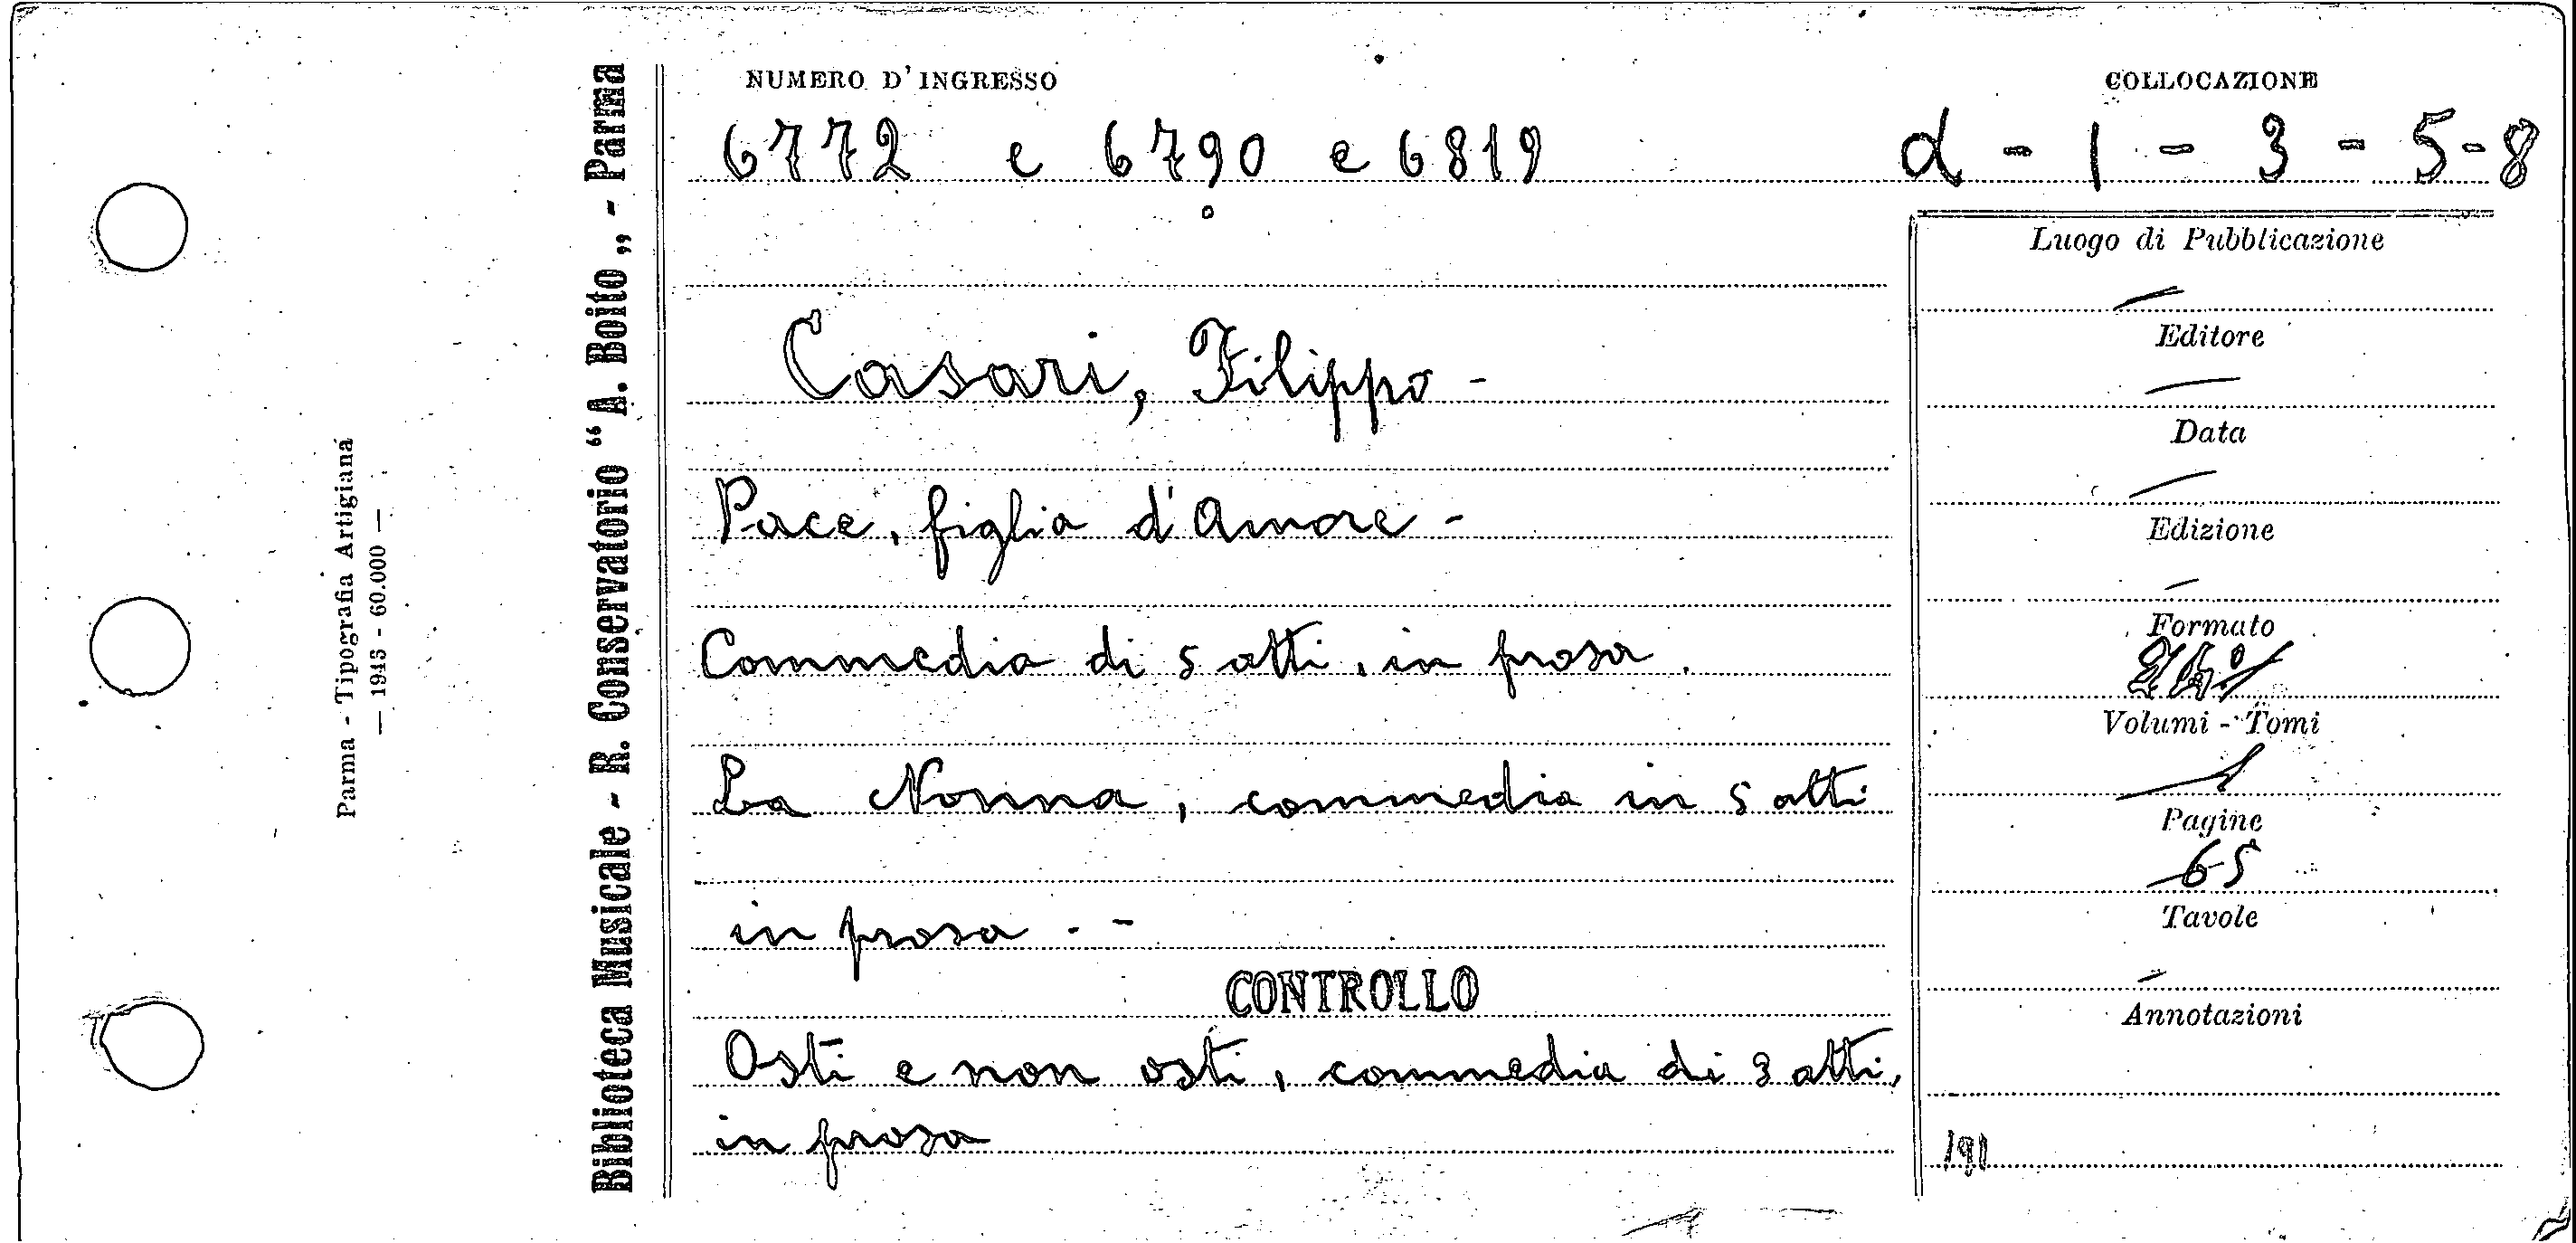 NUMERO D'INGRESSO
COLLOCAZIONE
6772 e 6790 e 6819
d - 1 - 3 - 5 - 8
Casari, Filippo -
Pace, figlia d'Amore -
Commedia di 5 atti, in prosa.
La Nonna, commedia in 5 atti
in prosa . -
CONTROLLO
Osti e non osti, commedia di 3 atti,
in prosa
Luogo di Pubblicazione
Editore
Data
Edizione
Formato
Volumi - Tomi
Pagine
65
Tavole
Annotazioni
191
Biblioteca Musicale - R. Conservatorio "A. Boito„ - Parma
Parma - Tipografia Artigiana
— 1943 - 60.000 —